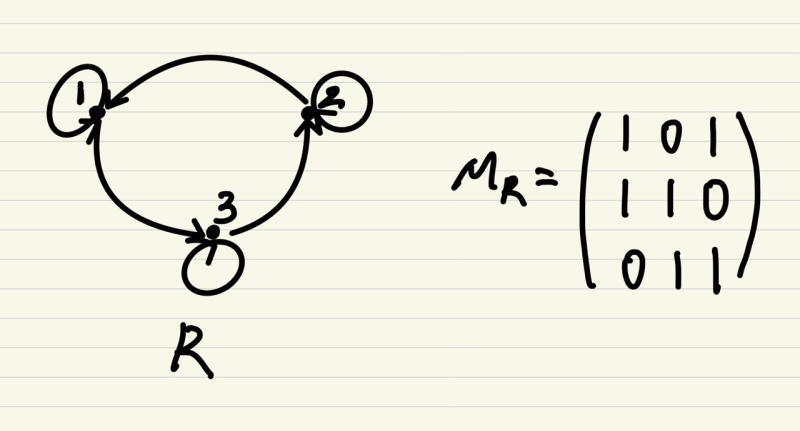 1
2
3
R
M_R = ( 1 0 1
1 1 0
0 1 1 )